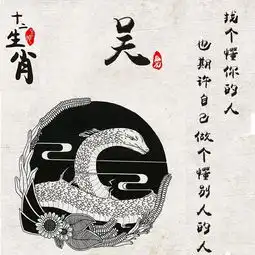 找个懂你的人
也期许自己做个懂别人的人
吴
十二生肖